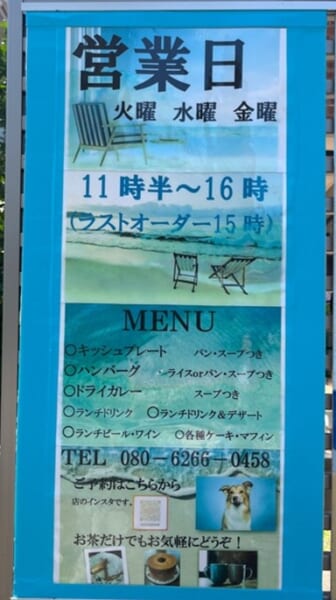 営業日
火曜 水曜 金曜
11時半～16時
(ラストオーダー15時)
MENU
○キッシュプレート パン・スープつき
○ハンバーグ ライスorパン・スープつき
○ドライカレー スープつき
○ランチドリンク ○ランチドリンク＆デザート
○ランチビール・ワイン ○各種ケーキ・マフィン
TEL 080－6266－0458
ご予約はこちらから
店のインスタです。
お茶だけでもお気軽にどうぞ！